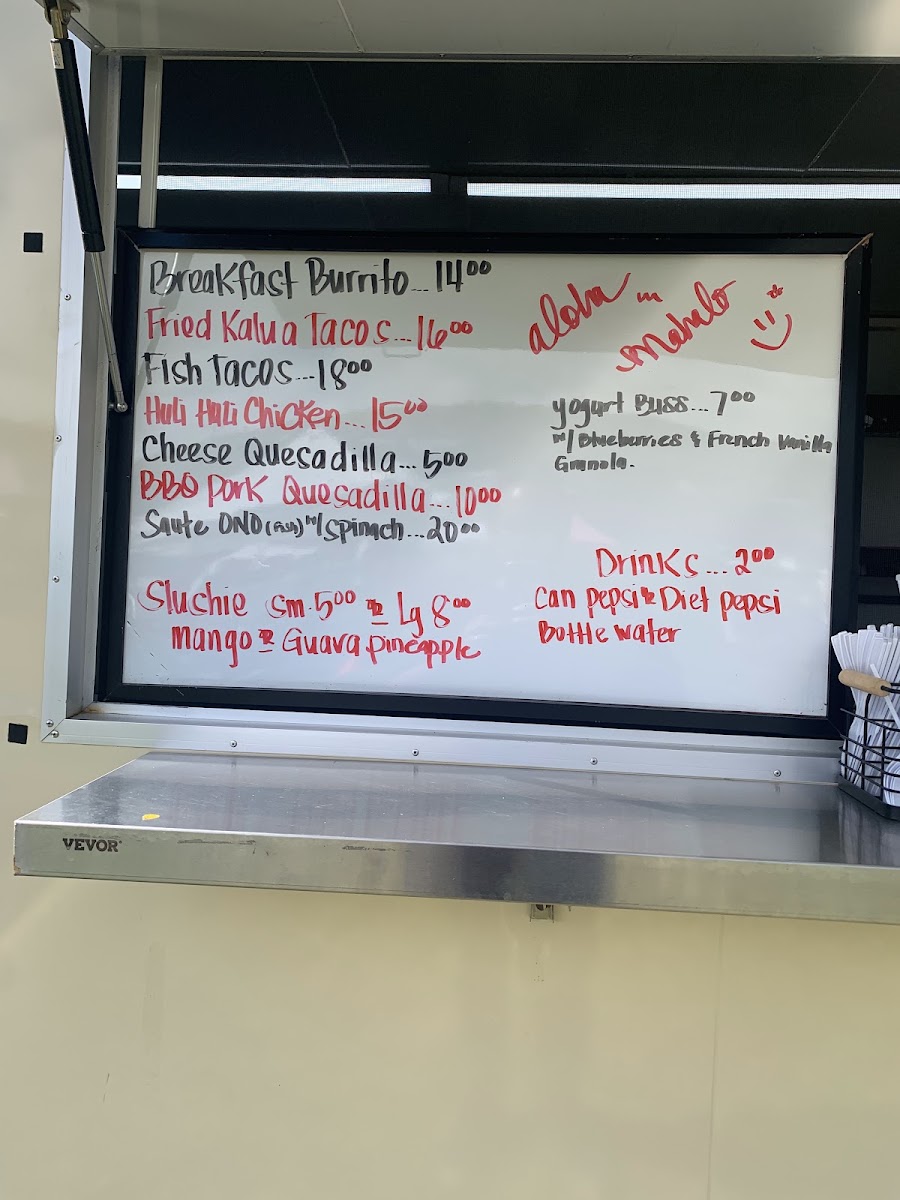 Breakfast Burrito...14⁰⁰
Fried Kalua Tacos...16⁰⁰
Fish Tacos...18⁰⁰
Huli Huli Chicken...15⁰⁰
Cheese Quesadilla...5⁰⁰
BBQ Pork Quesadilla...10⁰⁰
Saute ONO (Fish) w/spinach...20⁰⁰
Sluchie sm. 5⁰⁰ & Lg 8⁰⁰
mango & Guava pineapple
aloha
mahalo
yogurt Bliss...7⁰⁰
w/Blueberries & French Vanilla
Granola.
Drinks...2⁰⁰
Can pepsi & Diet pepsi
Bottle water
VEVOR